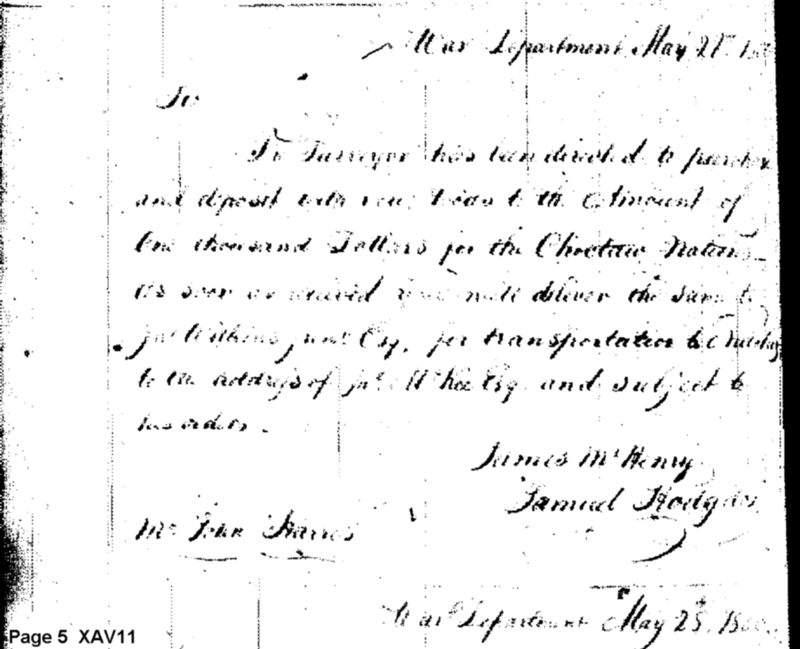 War Department May 21st
Sir
The Purveyor has been directed to purchase
and deposit with you Goods to the Amount of
One thousand Dollars for the Choctaw Nation
As soon as received you will deliver the same to
junr Esq. for transportation to
to the address of Jno. McKee Esq and subject to
his orders.
James McHenry
Samuel Hodgdon
Mr John Harris
War Department May 23d, 1800
Page 5 XAV11